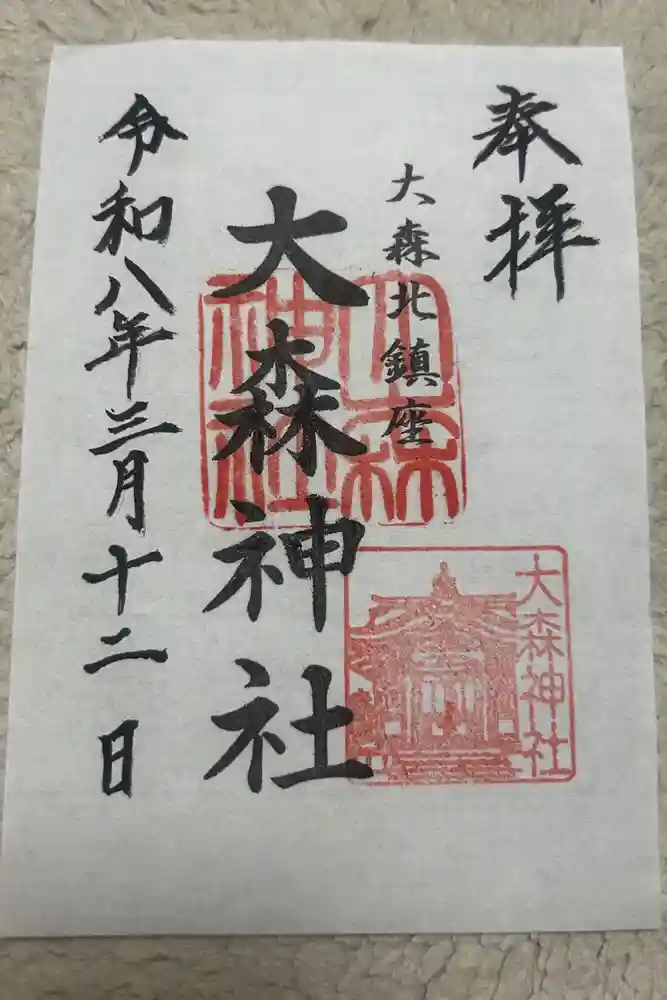 奉拝
大森北鎮座
大森神社
令和八年三月十二日
大森神社
大森神社